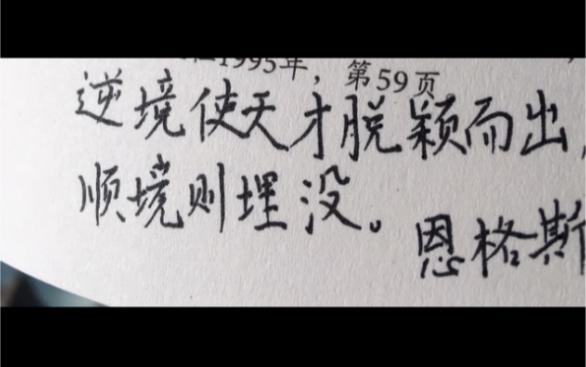 1995年，第59页
逆境使天才脱颖而出，
顺境则埋没。
恩格斯